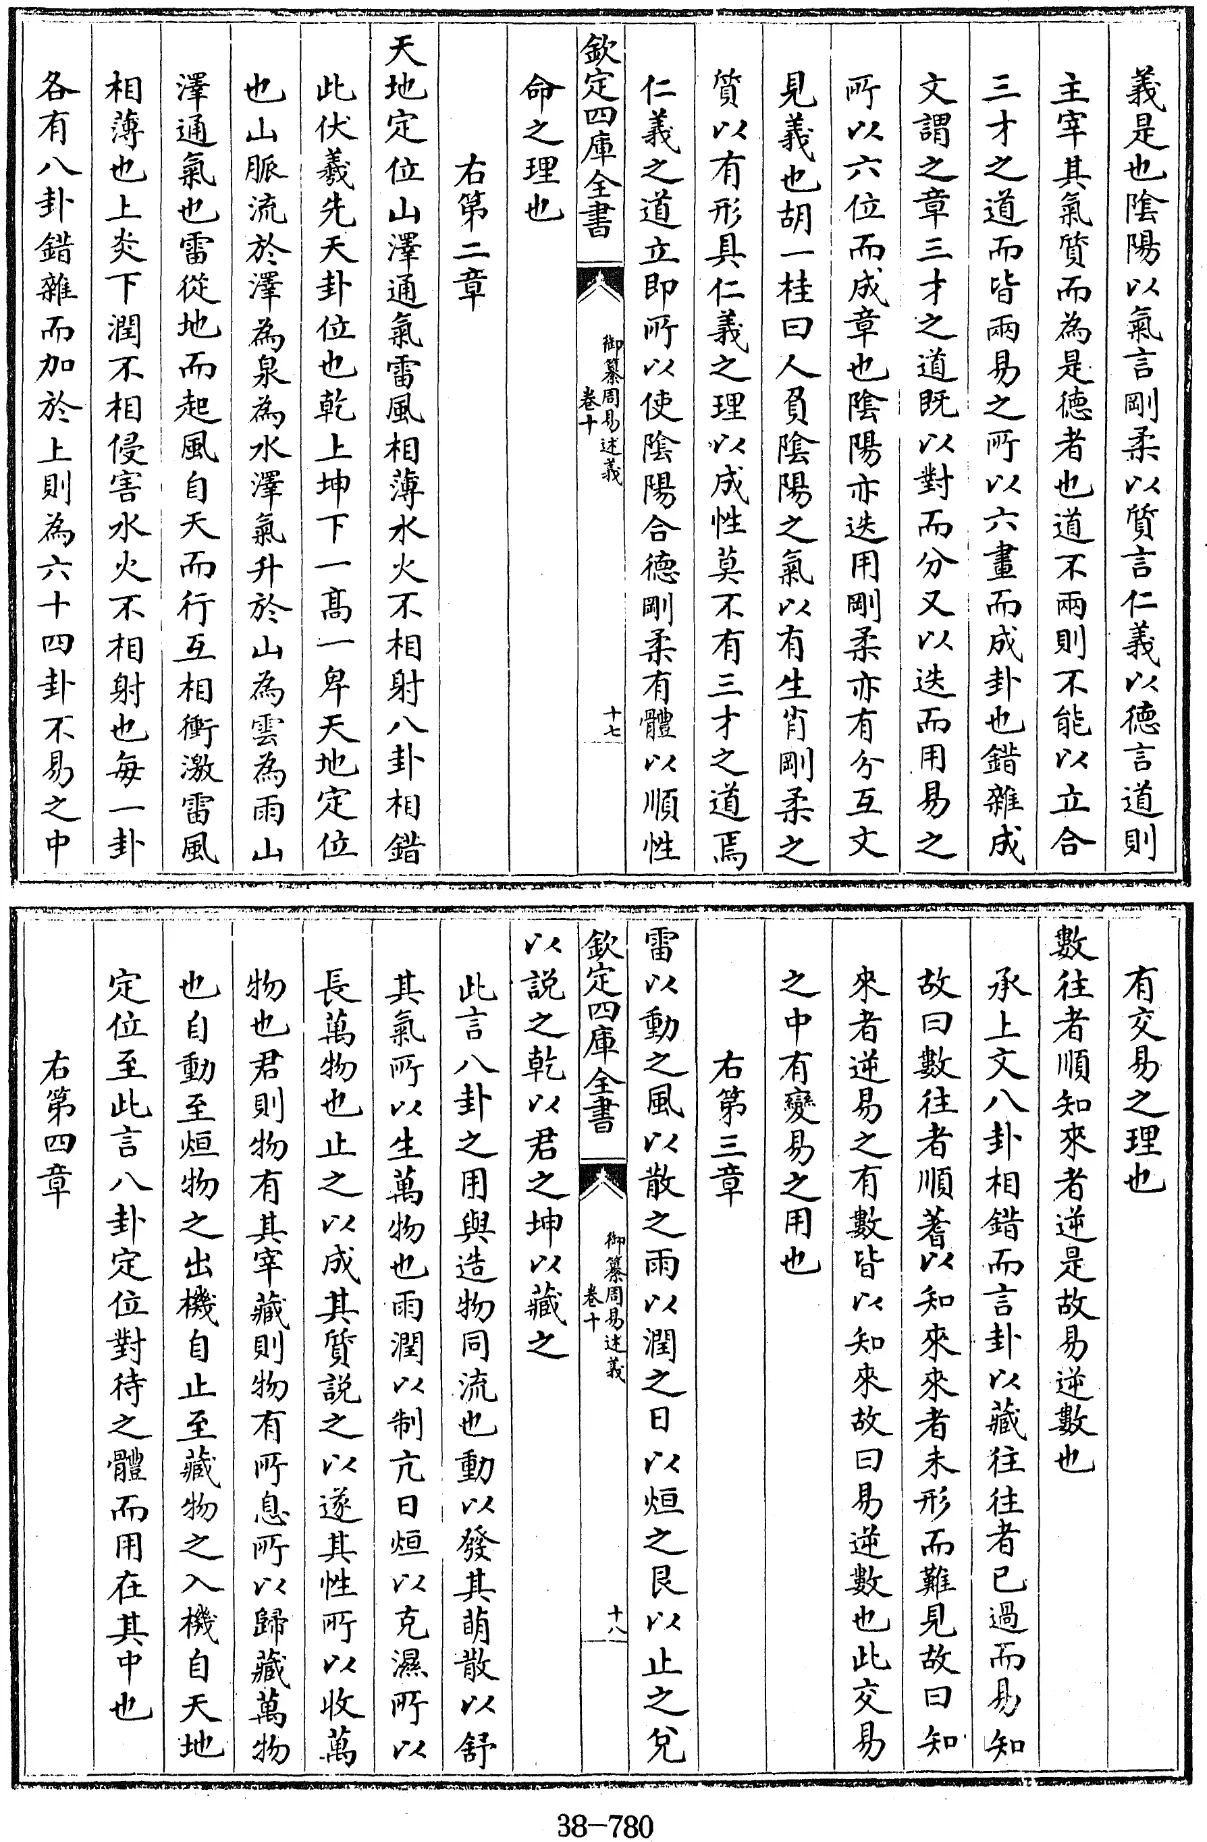 義是也陰陽以氣言剛柔以質言仁義以德言道則
主宰其氣質而為是德者也道不兩則不能以立合
三才之道而皆兩易之所以六畫而成卦也錯雜成
文謂之章三才之道既以對而分又以迭而用易之
所以六位而成章也陰陽亦迭用剛柔亦有分互文
見義也胡一桂曰人負陰陽之氣以有生肖剛柔之
質以有形具仁義之理以成性莫不有三才之道焉
仁義之道立即所以使陰陽合德剛柔有體以順性
欽定四庫全書
御纂周易述義
卷十
十七
命之理也
右第二章
天地定位山澤通氣雷風相薄水火不相射八卦相錯
此伏羲先天卦位也乾上坤下一高一卑天地定位
也山脈流於澤為泉為水澤氣升於山為雲為雨山
澤通氣也雷從地而起風自天而行互相衝激雷風
相薄也上炎下潤不相侵害水火不相射也每一卦
各有八卦錯雜而加於上則為六十四卦不易之中
有交易之理也
數往者順知來者逆是故易逆數也
承上文八卦相錯而言卦以藏往往者已過而易知
故曰數往者順蓍以知來來者未形而難見故曰知
來者逆易之有數皆以知來故曰易逆數也此交易
之中有變易之用也
右第三章
雷以動之風以散之雨以潤之日以烜之艮以止之兌
欽定四庫全書
御纂周易述義
卷十
十八
以說之乾以君之坤以藏之
此言八卦之用與造物同流也動以發其萌散以舒
其氣所以生萬物也雨潤以制亢日烜以克濕所以
長萬物也止之以成其質説之以遂其性所以收萬
物也君則物有其宰藏則物有所息所以歸藏萬物
也自動至烜物之出機自止至藏物之入機自天地
定位至此言八卦定位對待之體而用在其中也
右第四章
38-780